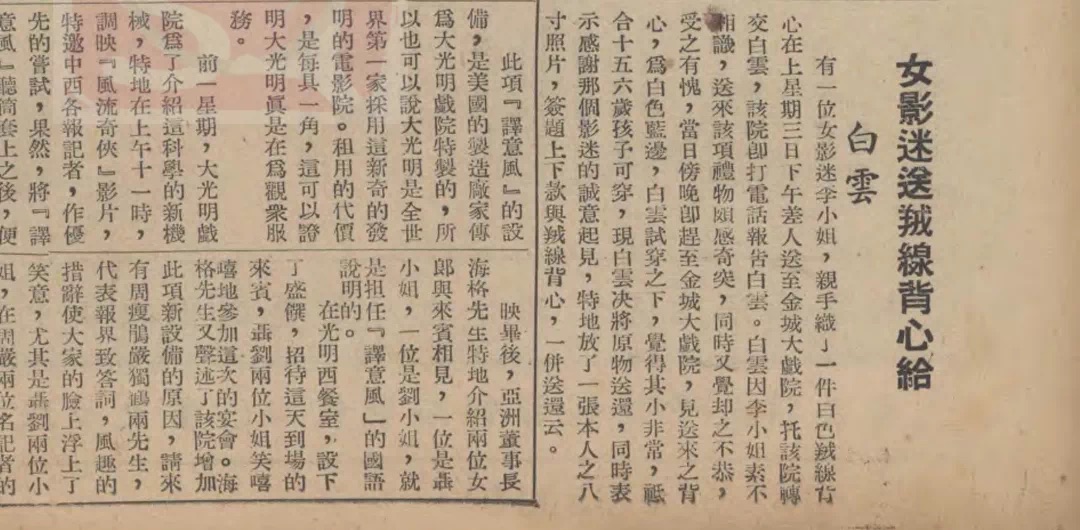 女影迷送羢線背心給
白雲
有一位女影迷李小姐，親手織了一件白色羢線背
心在上星期三日下午差人送至金城大戲院，托該院轉
交白雲，該院卽打電話報告白雲。白雲因李小姐素不
相識，送來該項禮物頗感奇突，同時又覺却之不恭，
受之有愧，當日傍晚卽趕至金城大戲院，見送來之背
心，爲白色藍邊，白雲試穿之下，覺得其小非常，祗
合十五六歲孩子可穿，現白雲决將原物送還，同時表
示感謝那個影迷的誠意起見，特地放了一張本人之八
寸照片，簽題上下款與羢線背心，一併送還云。
此項『譯意風』的設
備，是美國的製造廠家傳
爲大光明戲院特製的，所
以也可以說大光明是全世
界第一家採用這新奇的發
明的電影院。租用的代價
，是每具一角，這可以證
明大光明眞是在爲觀衆服
務。
前一星期，大光明戲
院爲了介紹這科學的新機
械，特地在上午十一時，
調映『風流奇俠』影片，
特邀中西各報記者，作優
先的嘗試，果然，將『譯
意風』聽筒套上之後，便
映畢後，亞洲董事長
海格先生特地介紹兩位女
郎與來賓相見，一位是聶
小姐，一位是劉小姐，就
是担任『譯意風』的國語
說明的。
在光明西餐室，設下
了盛饌，招待這天到場的
來賓，聶劉兩位小姐笑嘻
嘻地參加這次的宴會。海
格先生又聲述了該院增加
此項新設備的原因，請來
有周瘦鵑嚴獨鶴兩先生，
代表報界致答詞，風趣的
措辭使大家的臉上浮上了
笑意，尤其是聶劉兩位小
姐，在周嚴兩位名記者的